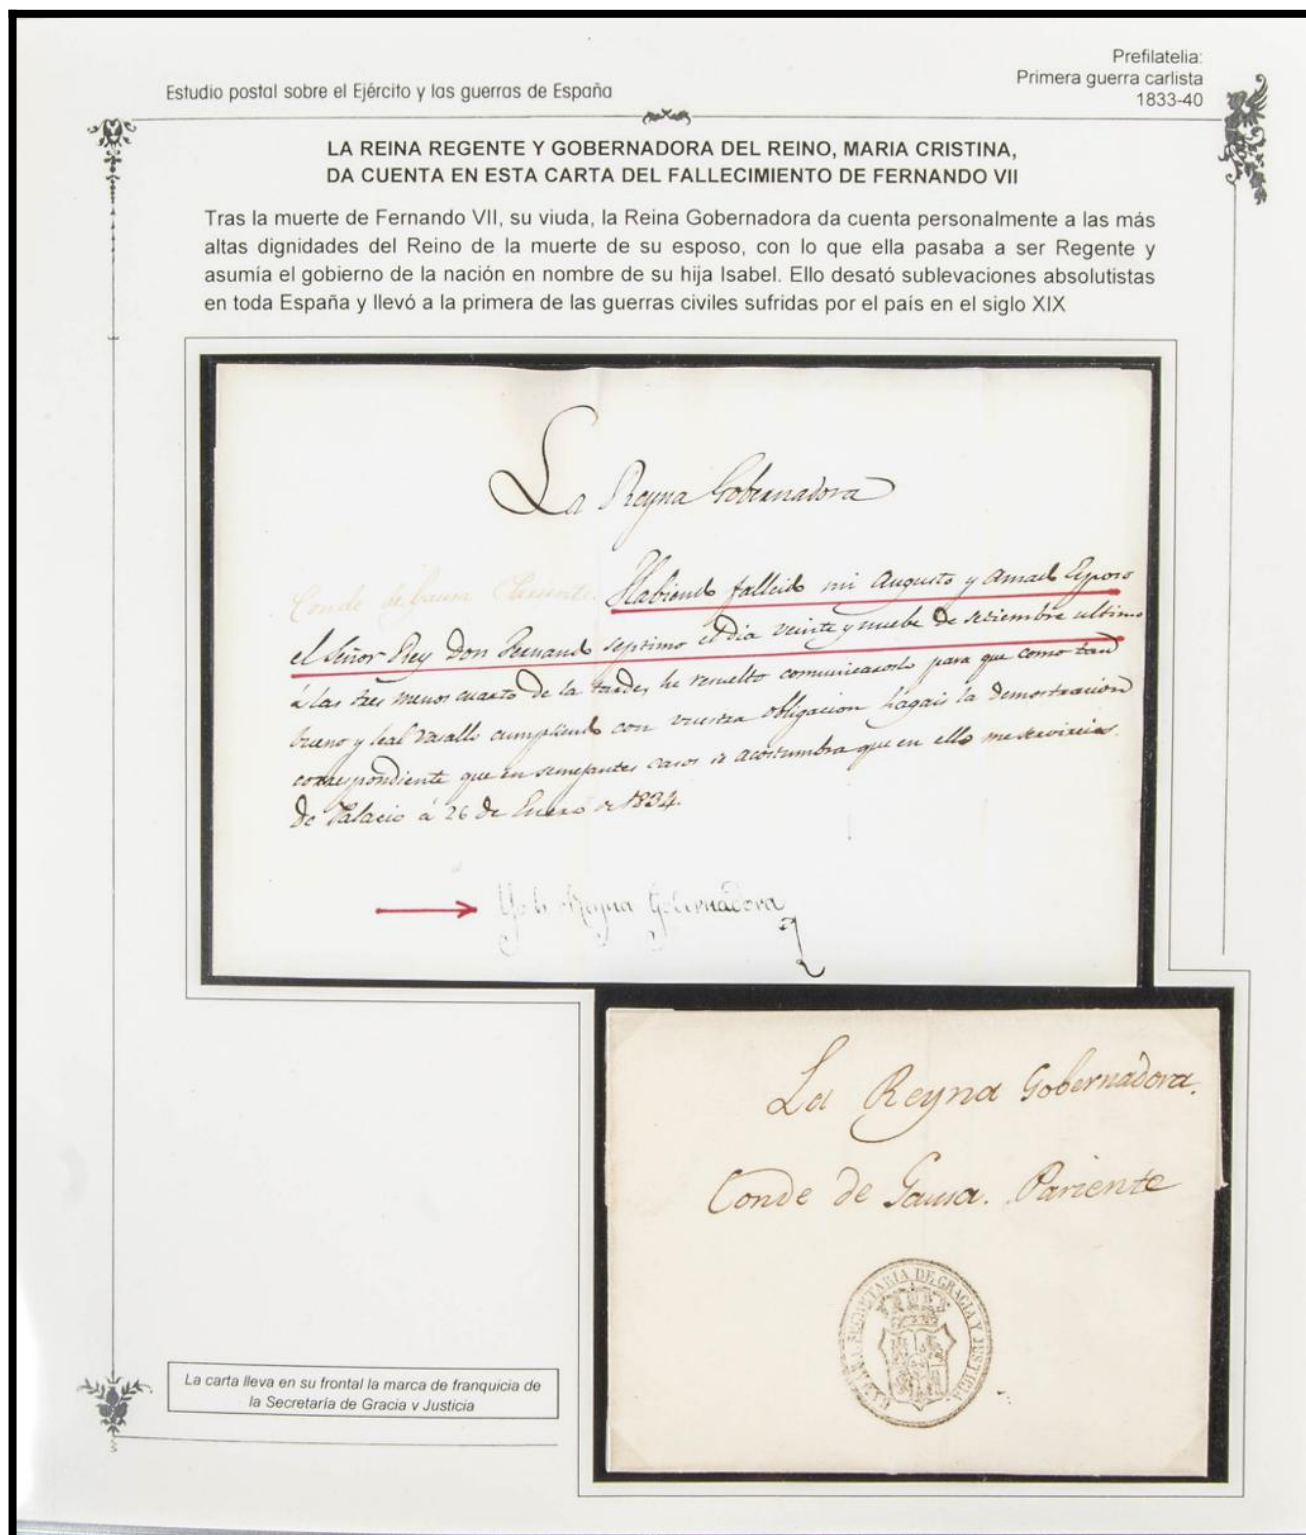 Estudio postal sobre el Ejército y las guerras de España
Prefilatelia:
Primera guerra carlista
1833-40
LA REINA REGENTE Y GOBERNADORA DEL REINO, MARIA CRISTINA,
DA CUENTA EN ESTA CARTA DEL FALLECIMIENTO DE FERNANDO VII
Tras la muerte de Fernando VII, su viuda, la Reina Gobernadora da cuenta personalmente a las más
altas dignidades del Reino de la muerte de su esposo, con lo que ella pasaba a ser Regente y
asumía el gobierno de la nación en nombre de su hija Isabel. Ello desató sublevaciones absolutistas
en toda España y llevó a la primera de las guerras civiles sufridas por el país en el siglo XIX
La Reyna Gobernadora
Conde de Gausa Pariente. Habiendo fallecido mi Augusto y Amado Esposo
el Señor Rey Don Fernando septimo el dia veinte y nuebe de setiembre ultimo
á las tres menos cuarto de la tarde, he resuelto comunicaroslo para que como tan
bueno y leal vasallo cumpliendo con vuestra obligacion hagais la demostracion
correspondiente que en semejantes casos se acostumbra que en ello me servireis.
De Palacio á 26 de Enero de 1834.
Yo la Reyna Gobernadora
La Reyna Gobernadora.
Conde de Gausa. Pariente
SECRETARIA DE GRACIA Y JUSTICIA
La carta lleva en su frontal la marca de franquicia de
la Secretaría de Gracia y Justicia